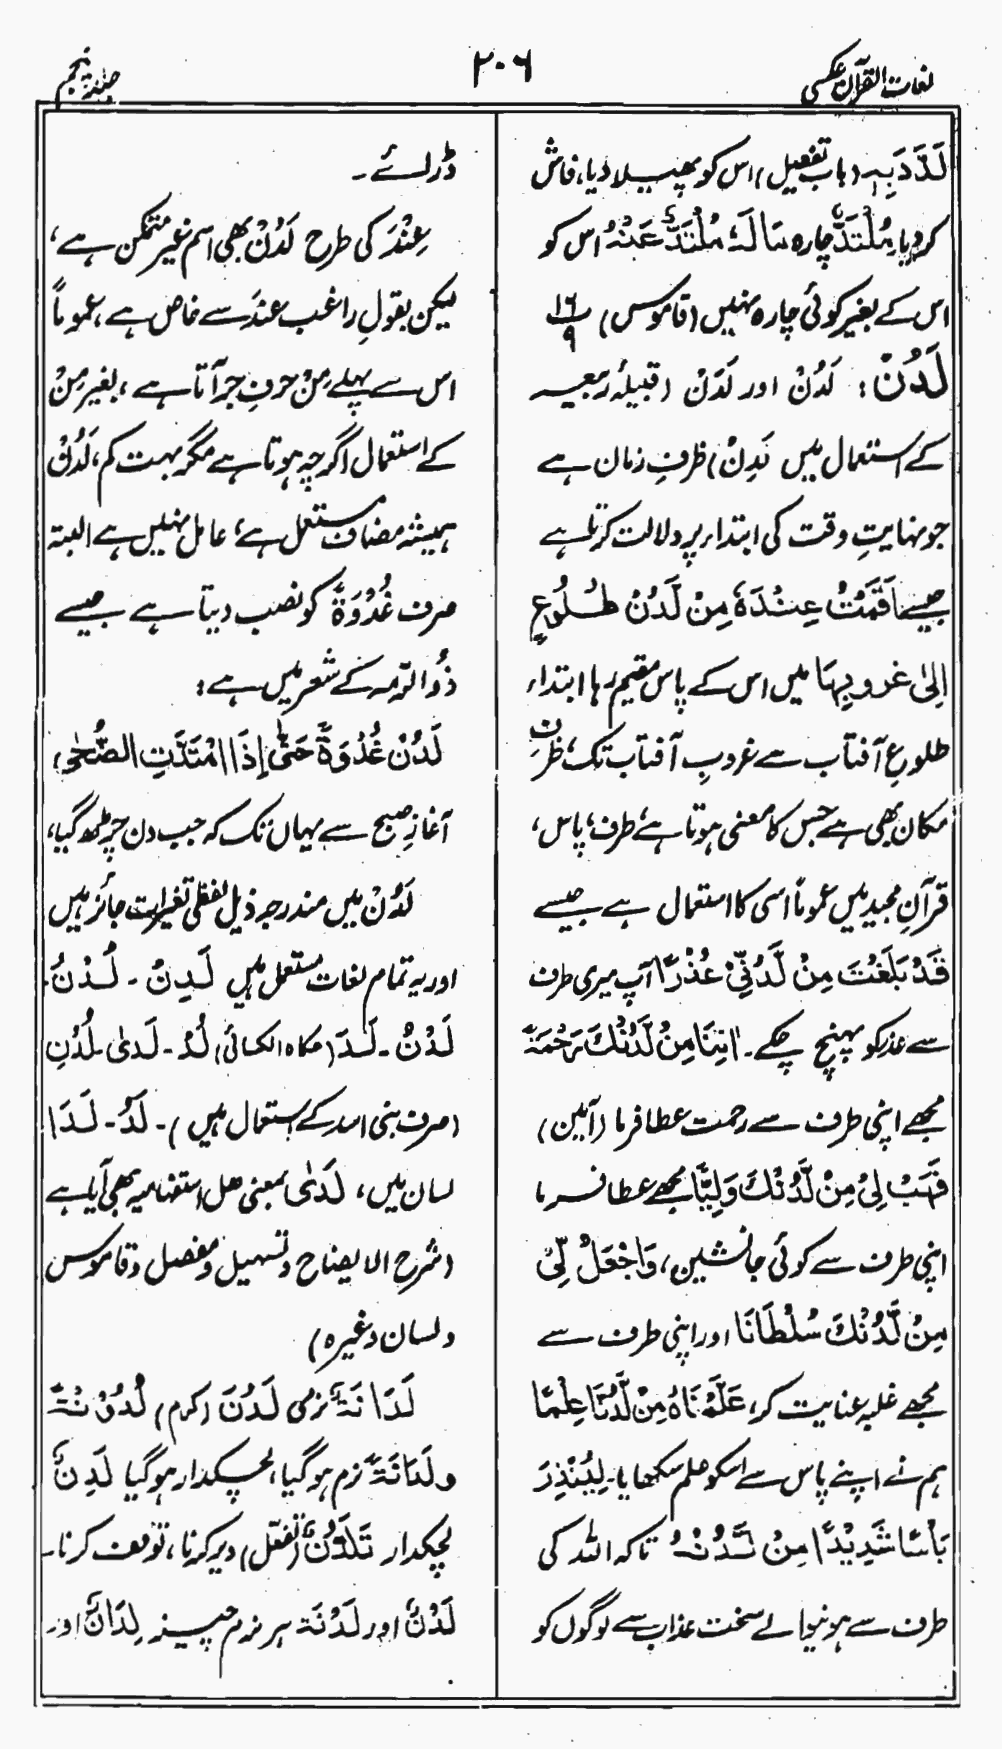 لغات القرآن عکسی
۲۰۶
جلد پنجم
لَدَّدَ بِہٖ (باب تفعیل) اس کو پھیلا دیا، فاش
کر دیا، مُلْتَدٌّ چارہ مَا لَہٗ مُلْتَدٌّ عَنْہُ اس کو
اس کے بغیر کوئی چارہ نہیں (قاموس) ۱۶/۹
لَدُنْ: لَدُنْ اور لَدَنْ (قبیلۂ ربیعہ
کے استعمال میں لَدِنْ) ظرفِ زمان ہے
جو نہایتِ وقت کی ابتداء پر دلالت کرتا ہے
جیسے اَقَمْتُ عِنْدَہٗ مِنْ لَدُنْ طُلُوعِ
اِلیٰ غروبِہَا میں اس کے پاس مقیم رہا ابتداء
طلوعِ آفتاب سے غروبِ آفتاب تک، ظرفِ
مکان بھی ہے جس کا معنی ہوتا ہے، طرف، پاس،
قرآنِ مجید میں عموماً اسی کا استعمال ہے جیسے
قَدْ بَلَغْتَ مِنْ لَّدُنِّیْ عُذْرًا آپ میری طرف
سے عذر کو پہنچ چکے۔ اٰتِنَا مِنْ لَّدُنْكَ رَحْمَۃً
مجھے اپنی طرف سے رحمت عطا فرما (آمین)
فَہَبْ لِیْ مِنْ لَّدُنْكَ وَلِیًّا مجھے عطا فرما
اپنی طرف سے کوئی جانشین، وَاجْعَلْ لِّیْ
مِنْ لَّدُنْكَ سُلْطَانًا اور اپنی طرف سے
مجھے غلبہ عنایت کر، عَلَّمْنَاہُ مِنْ لَّدُنَّا عِلْمًا
ہم نے اپنے پاس سے اسکو علم سکھایا۔ لِیُنْذِرَ
بَاْسًا شَدِیْدًا مِنْ لَّدُنْہُ تاکہ اللہ کی
طرف سے ہونیوالے سخت عذاب سے لوگوں کو
ڈرائے۔
عِنْدَ کی طرح لَدُنْ بھی اسم غیر متمکن ہے،
لیکن بقولِ راغب عند سے خاص ہے، عموماً
اس سے پہلے مِنْ حرفِ جر آتا ہے، بغیر مِنْ
کے استعمال اگرچہ ہوتا ہے مگر بہت کم، لَدُنْ
ہمیشہ مضاف مستعمل ہے، عامل نہیں ہے البتہ
صرف غُدْوَۃً کو نصب دیتا ہے جیسے
ذُوالرّمہ کے شعر میں ہے:
لَدُنْ غُدْوَۃً حَتّٰی إِذَا امْتَدَّتِ الضُّحٰی؛
آغازِ صبح سے یہاں تک کہ جب دن چڑھ گیا،
لَدُنْ میں مندرجہ ذیل لفظی تغیرات جائز ہیں
اور یہ تمام لغات مستعمل ہیں لَدِنْ ۔ لُدْنُ۔
لَدْنُ ۔ لَدَ (حکاہ الکسائی) لُدْ ۔ لَدیٰ ۔ لُدُنِ
(صرف بنی اسد کے استعمال میں) ۔ لَدُ ۔ لَدَا
لسان میں، لَدیٰ بمعنی ھل استفہامیہ بھی آیا ہے
(شرح الایضاح و تسہیل و مفصل و قاموس
ولسان وغیرہ)
لَدَانَۃٌ نرمی لَدُنَ (کرم) لُدُوْنَۃً
ولَدَانَۃً نرم ہو گیا، لچکدار ہو گیا لَدِنٌ
لچکدار تَلَدُّنٌ (تفعّل) دیر کرنا، توقف کرنا۔
لَدْنٌ اور لَدْنَۃ ہر نرم چیز لِدَانٌ اور